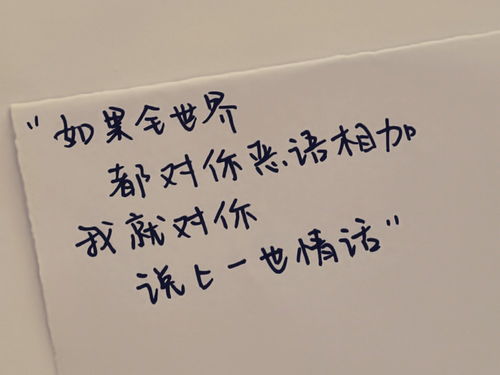 "如果全世界
都对你恶语相加
我就对你
说上一世情话"